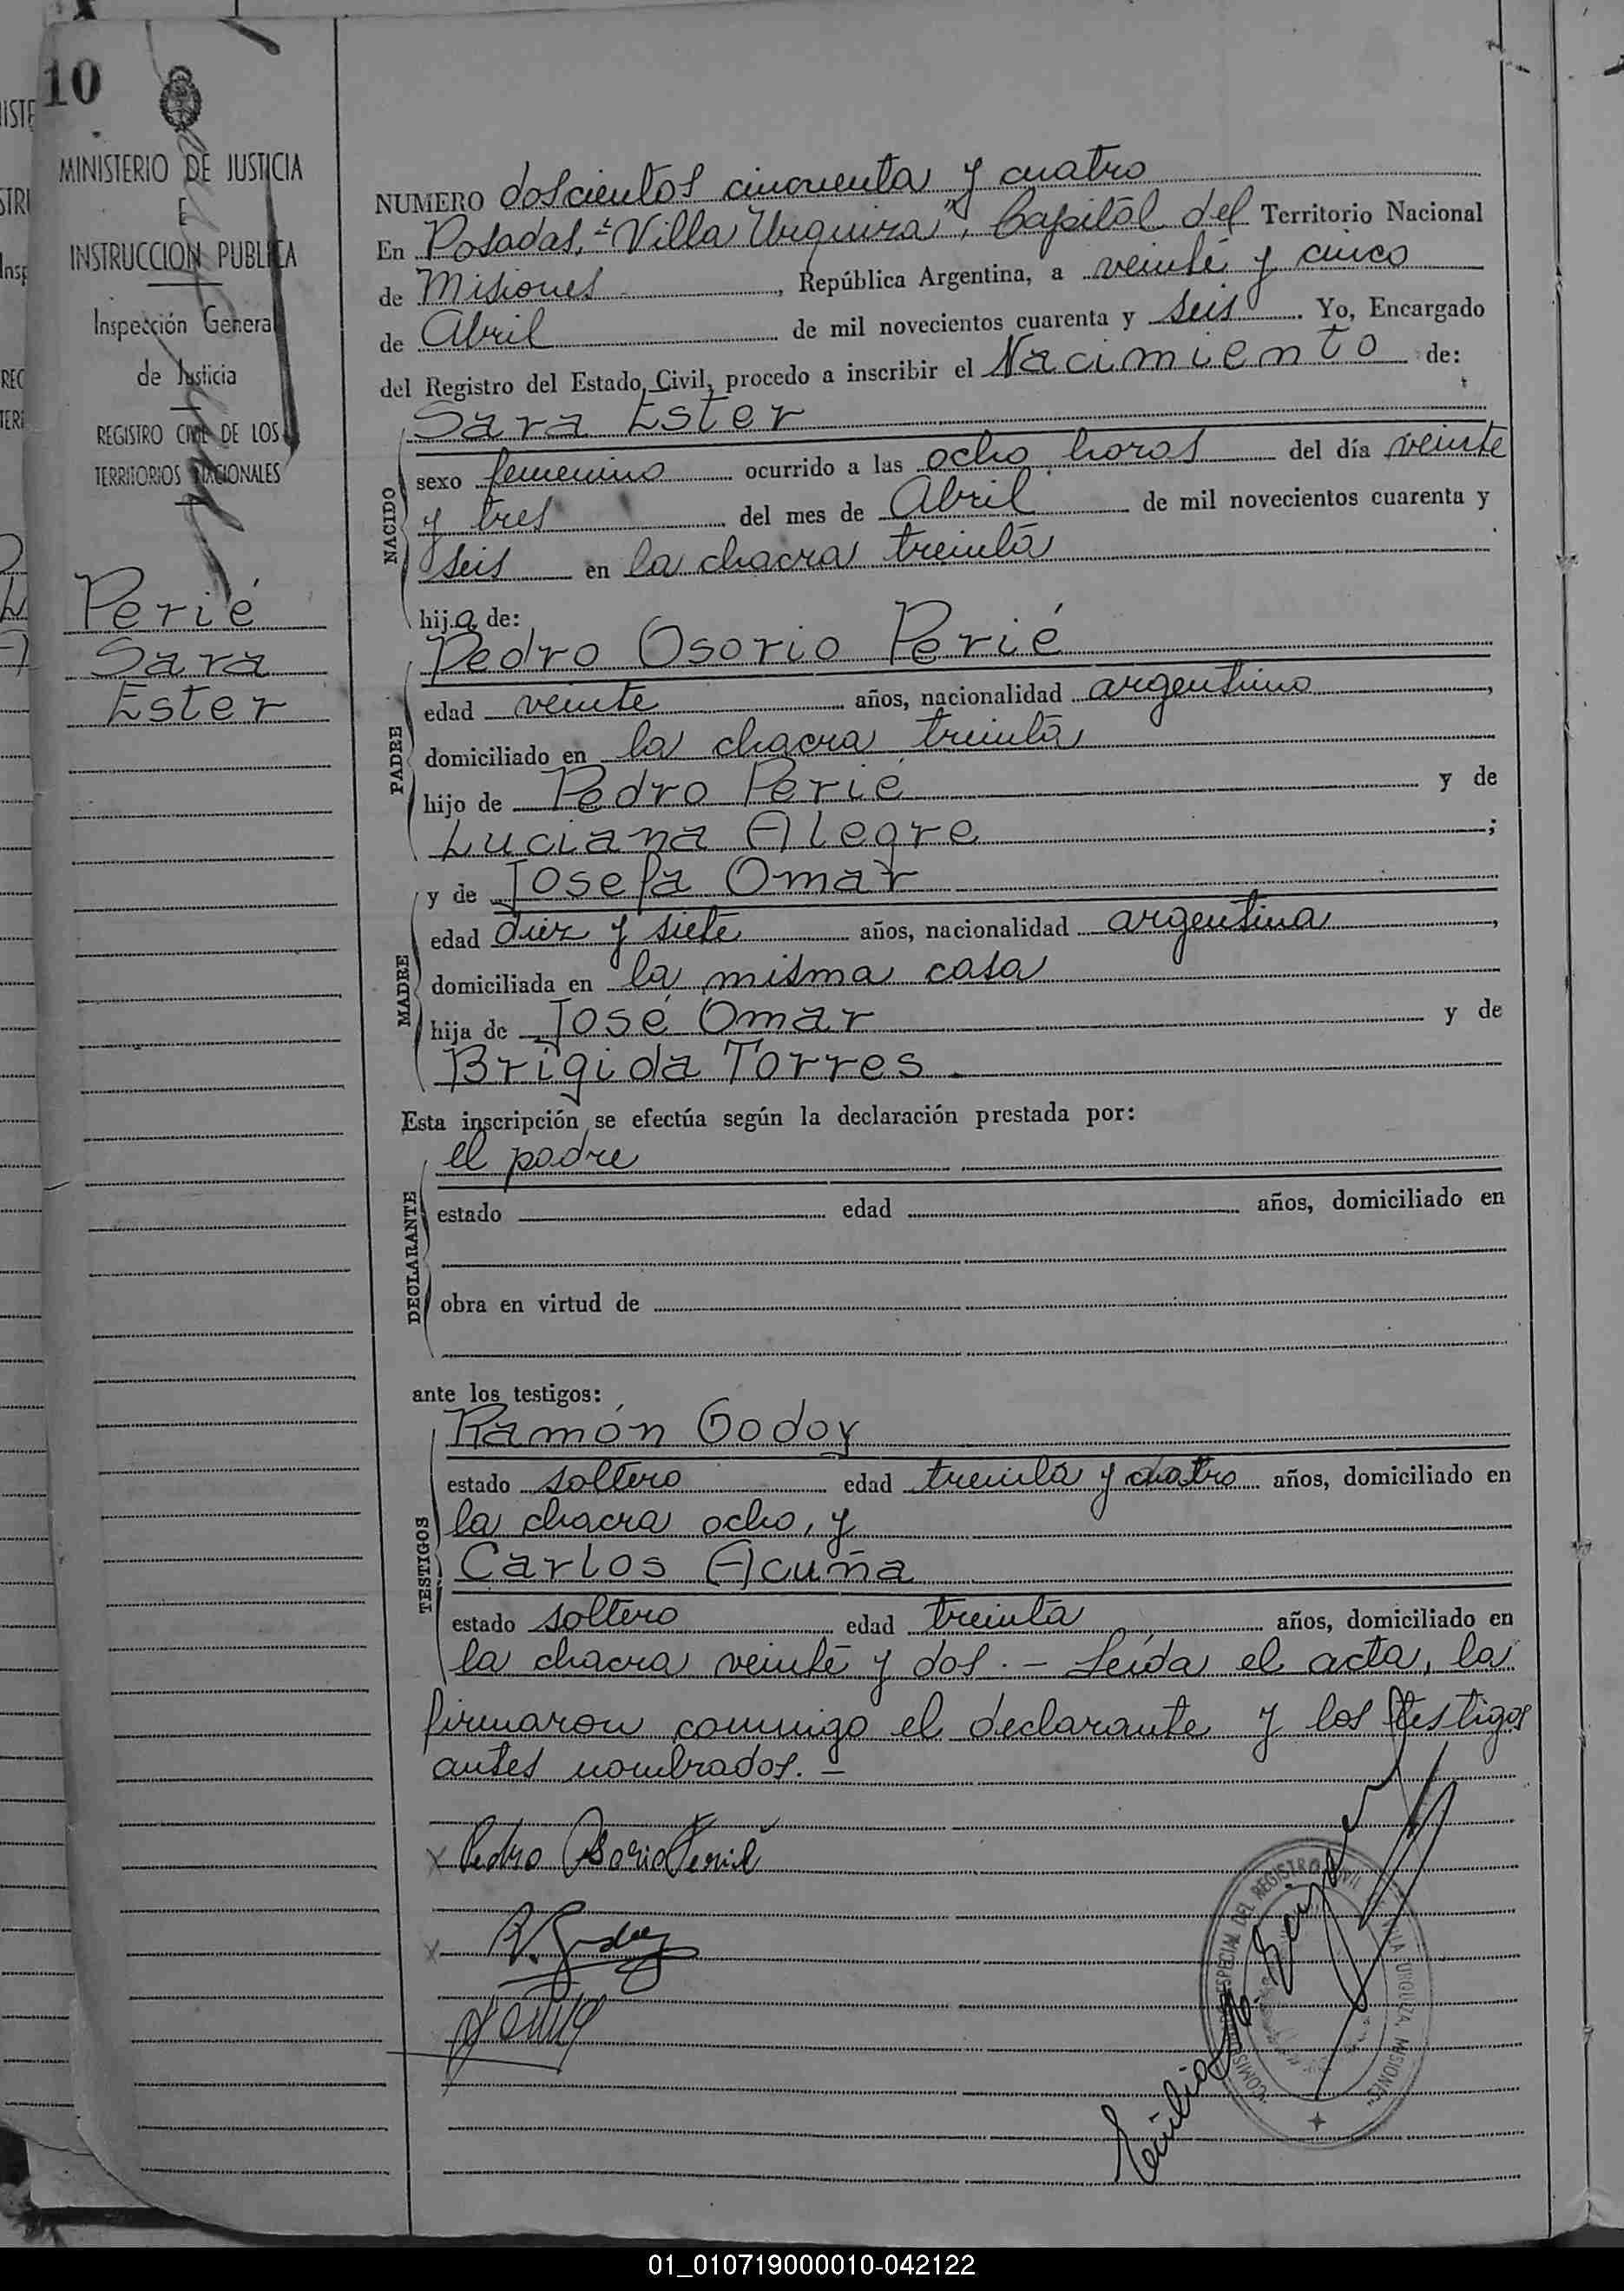 10
MINISTERIO DE JUSTICIA
E
INSTRUCCION PUBLICA
Inspección General
de Justicia
REGISTRO CIVIL DE LOS
TERRITORIOS NACIONALES
Perié
Sara
Ester
NUMERO doscientos cincuenta y cuatro
En Posadas, "Villa Urquiza", Capital del Territorio Nacional
de Misiones, República Argentina, a veinte y cinco
de Abril de mil novecientos cuarenta y seis. Yo, Encargado
del Registro del Estado Civil, procedo a inscribir el Nacimiento de:
Sara Ester
NACIDO
sexo femenino ocurrido a las ocho horas del día veinte
y tres del mes de Abril de mil novecientos cuarenta y
seis en la chacra treinta
hija de:
Pedro Osorio Perié
PADRE
edad veinte años, nacionalidad argentino,
domiciliado en la chacra treinta
hijo de Pedro Perié y de
Luciana Alegre;
y de Josefa Omar
MADRE
edad diez y siete años, nacionalidad argentina,
domiciliada en la misma casa
hija de José Omar y de
Brígida Torres.
Esta inscripción se efectúa según la declaración prestada por:
el padre
DECLARANTE
estado edad años, domiciliado en
obra en virtud de
ante los testigos:
Ramón Godoy
TESTIGOS
estado soltero edad treinta y cuatro años, domiciliado en
la chacra ocho, y
Carlos Acuña
estado soltero edad treinta años, domiciliado en
la chacra veinte y dos. - Leída el acta, la
firmaron conmigo el declarante y los testigos
antes nombrados. -
x Pedro Osorio Perié
x R. Godoy
DEL REGISTRO CIVIL
VILLA URQUIZA, MISIONES
01_010719000010-042122